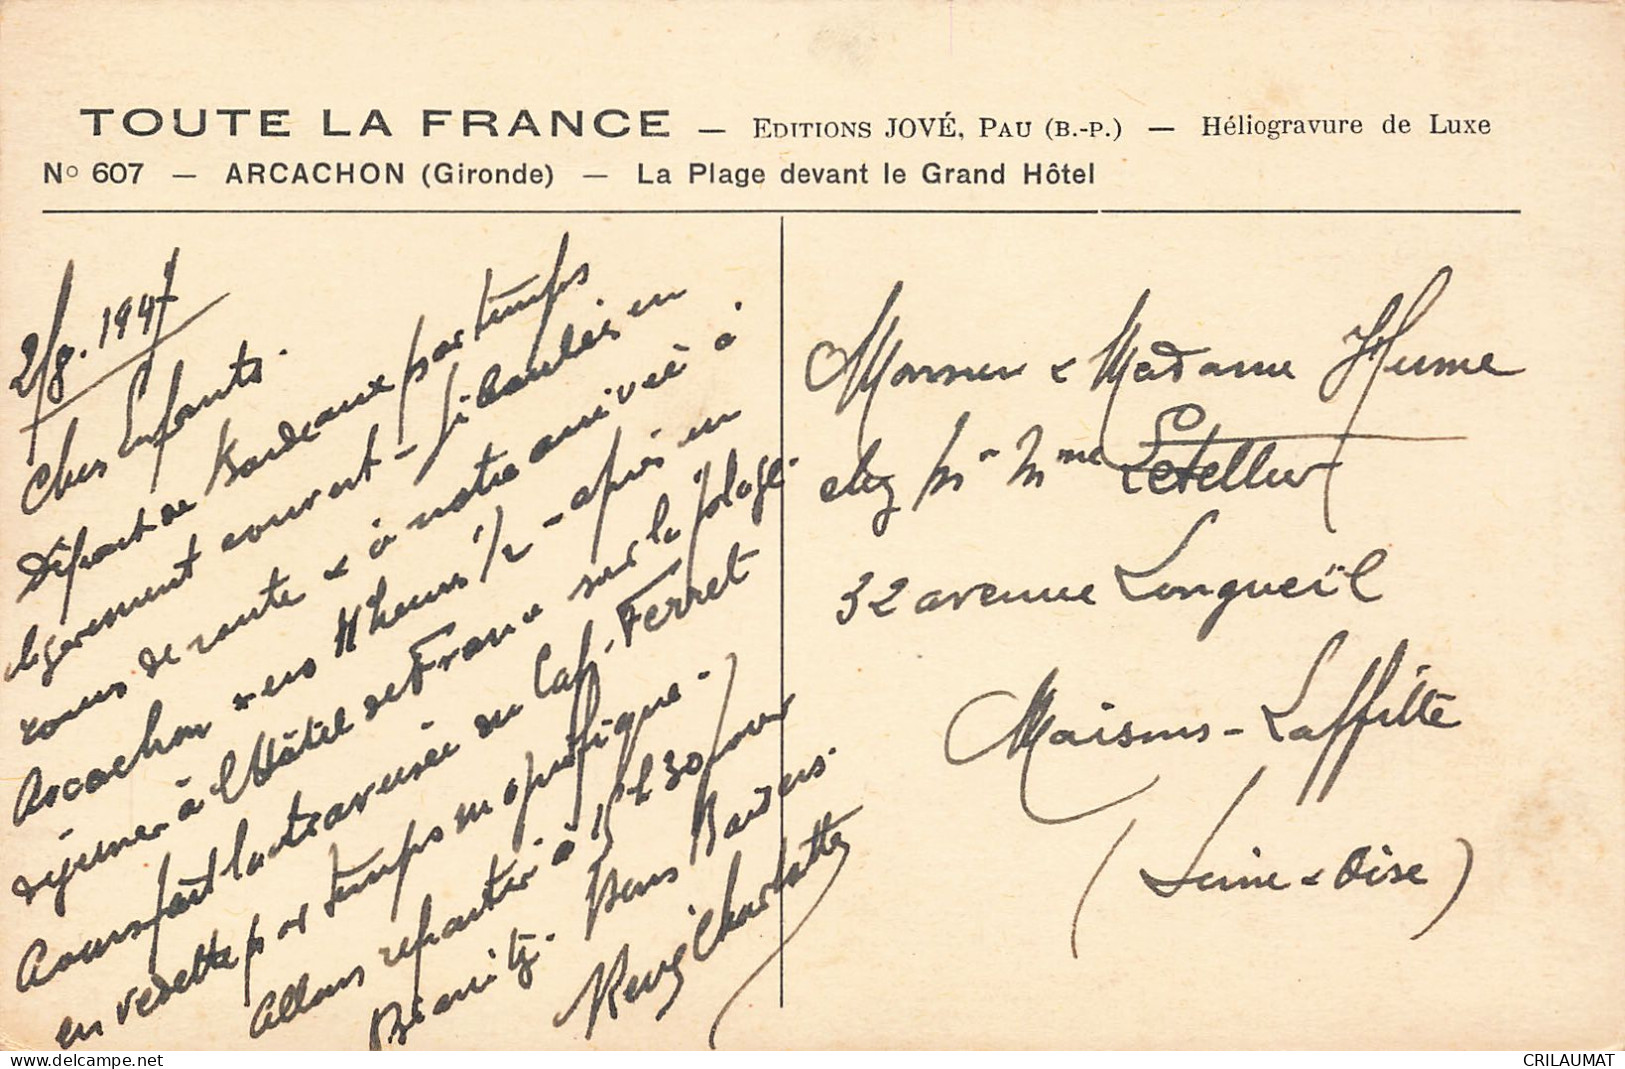 TOUTE LA FRANCE — EDITIONS JOVÉ, PAU (B.-P.) — Héliogravure de Luxe
N° 607 — ARCACHON (Gironde) — La Plage devant le Grand Hôtel
2/8. 1947
Chers Enfants.
Départ de Bordeaux par temps
légèrement couvert - giboulées en
cours de route & à notre arrivée à
Arcachon vers 11 heures 1/2 - après un
déjeuner à l'Hôtel de France sur la plage.
Avons fait la traversée du Cap-Ferret
en vedette par temps magnifique.
Allons repartir à 15h30 pour
Biarritz. Bons Baisers.
Charlotte
Monsieur & Madame Hume
chez Mr Mme Letellier
32 avenue Longueil
Maisons-Laffitte
(Seine & Oise)
www.delcampe.net
CRILAUMAT